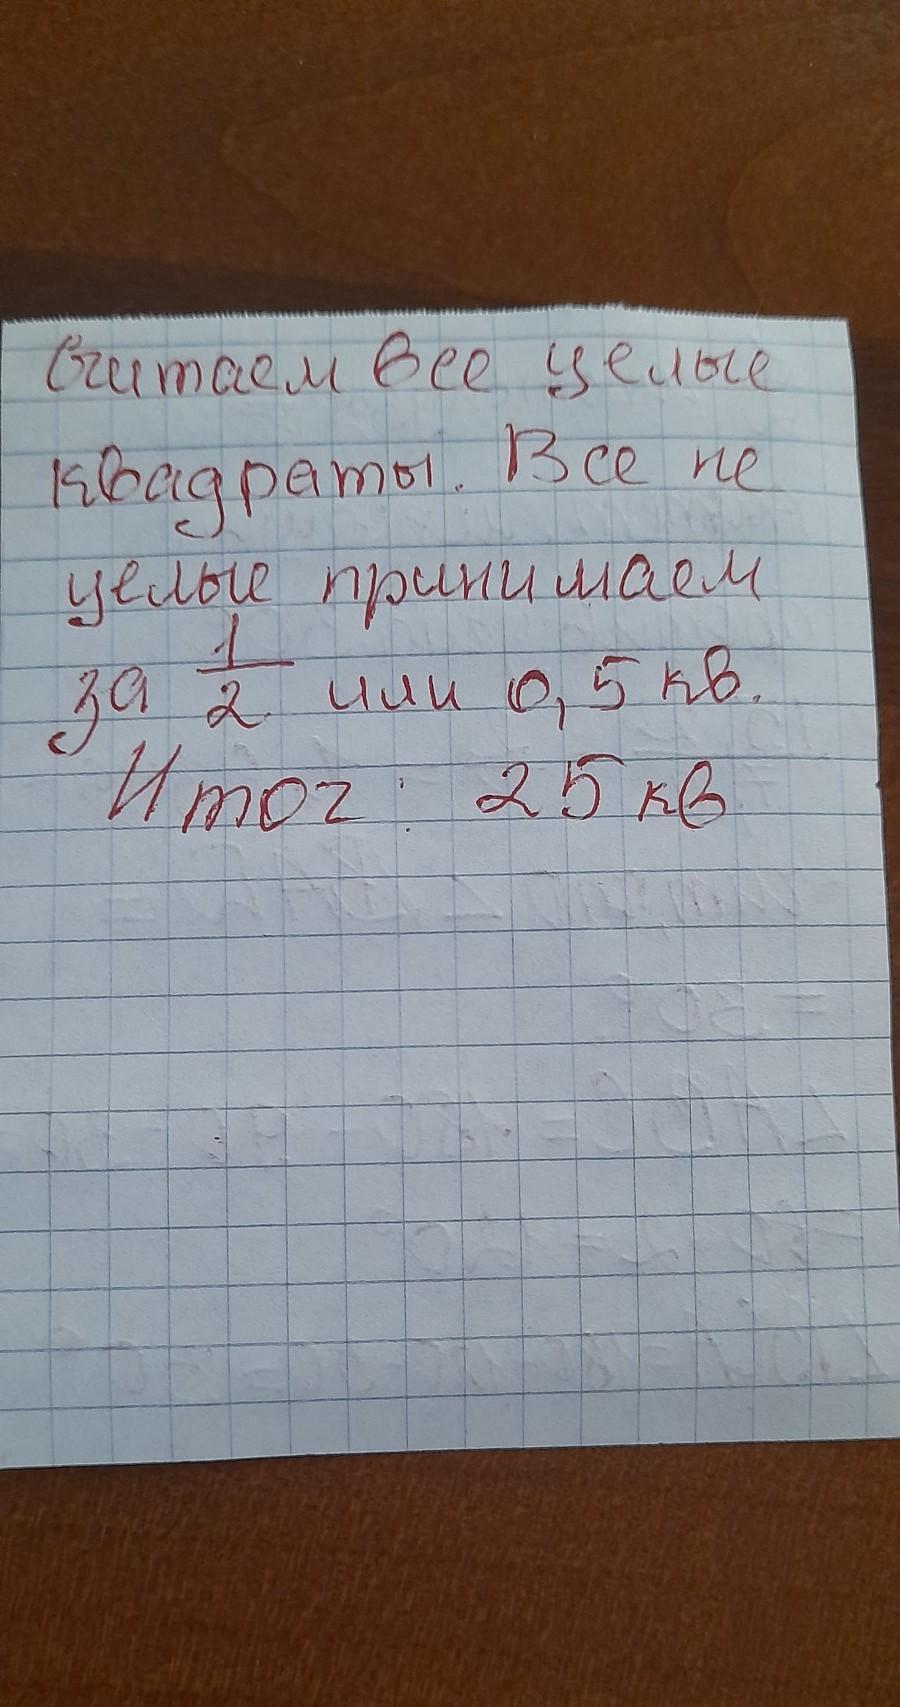 Считаем все целые
квадраты. Все не
целые принимаем
за 1/2 или 0,5 кв.
Итог: 25 кв